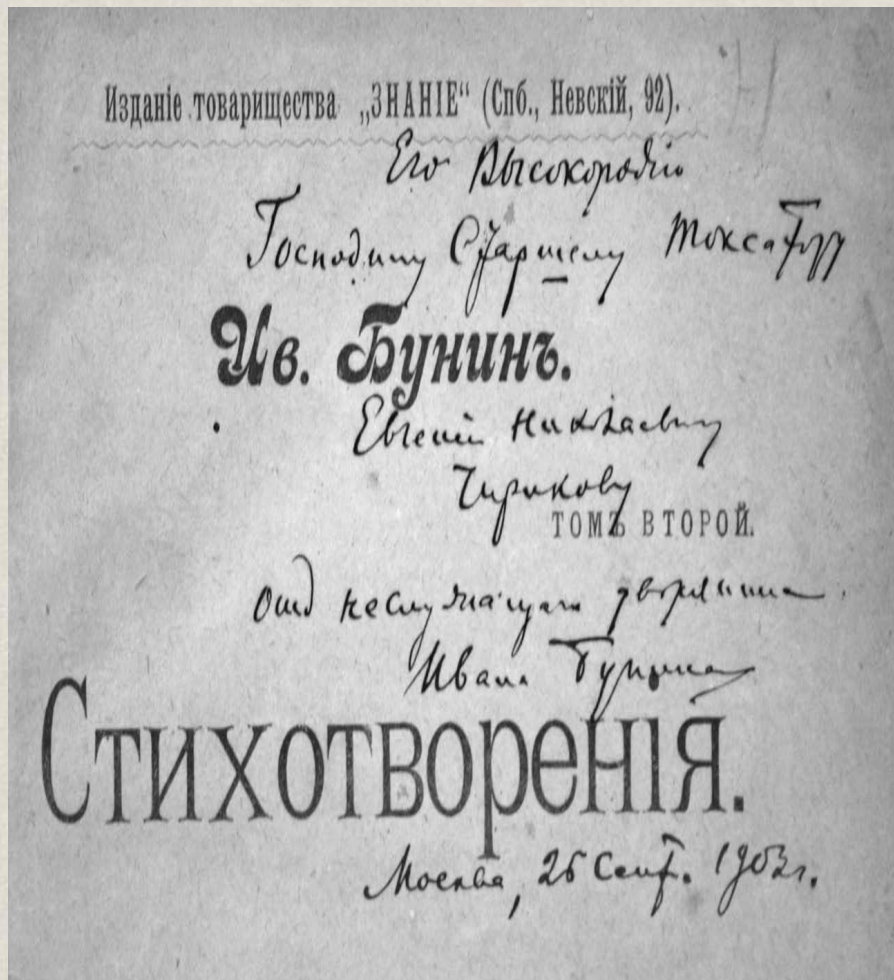 Изданіе товарищества „ЗНАНІЕ“ (Спб., Невскій, 92).
Его Высокородію
Господину Старшему Токсатору
Ив. Бунинъ.
Евгенію Николаевичу
Чирикову
ТОМЪ ВТОРОЙ.
отъ неслужащаго дворянина
Ивана Бунина
Стихотворенія.
Москва, 26 Сент. 1903 г.